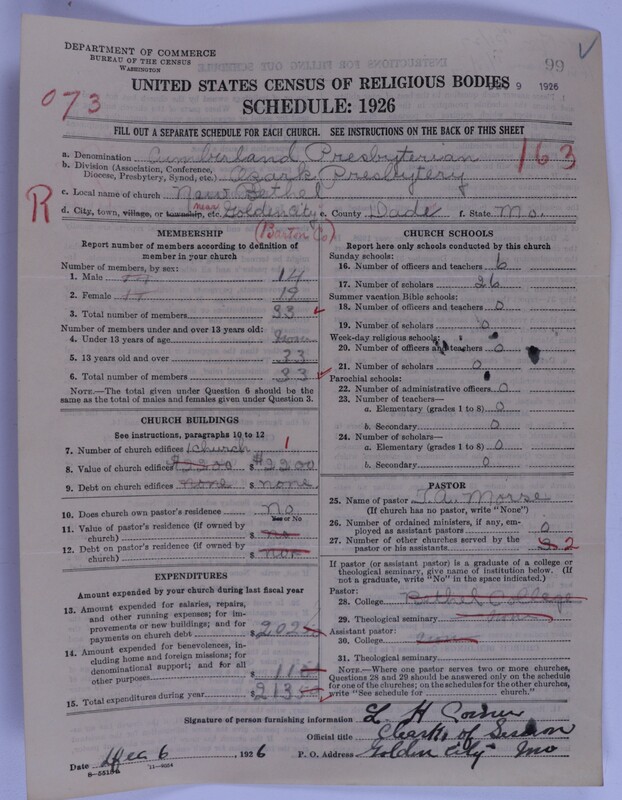 DEPARTMENT OF COMMERCE
BUREAU OF THE CENSUS
WASHINGTON
99
UNITED STATES CENSUS OF RELIGIOUS BODIES
9 1926
SCHEDULE: 1926
073
FILL OUT A SEPARATE SCHEDULE FOR EACH CHURCH. SEE INSTRUCTIONS ON THE BACK OF THIS SHEET
a. Denomination Cumberland Presbyterian
163
b. Division (Association, Conference, Diocese, Presbytery, Synod, etc.) Ozark Presbytery
R
c. Local name of church New Bethel
d. City, town, village, or township, etc. near Golden City e. County Dade f. State Mo.
(Barton Co)
MEMBERSHIP
Report number of members according to definition of member in your church
Number of members, by sex:
1. Male 14
2. Female 19
3. Total number of members 33
Number of members under and over 13 years old:
4. Under 13 years of age
5. 13 years old and over 33
6. Total number of members 33
NOTE.—The total given under Question 6 should be the same as the total of males and females given under Question 3.
CHURCH BUILDINGS
See instructions, paragraphs 10 to 12
7. Number of church edifices 1 church 1
8. Value of church edifices $2200 $2200
9. Debt on church edifices none $ none
10. Does church own pastor's residence No
Yes or No
11. Value of pastor's residence (if owned by church) $ no
12. Debt on pastor's residence (if owned by church) $
EXPENDITURES
Amount expended by your church during last fiscal year
13. Amount expended for salaries, repairs, and other running expenses; for improvements or new buildings; and for payments on church debt $ 202
14. Amount expended for benevolences, including home and foreign missions; for denominational support; and for all other purposes $ 11
15. Total expenditures during year $ 213
CHURCH SCHOOLS
Report here only schools conducted by this church
Sunday schools:
16. Number of officers and teachers 6
17. Number of scholars 26
Summer vacation Bible schools:
18. Number of officers and teachers 0
19. Number of scholars 0
Week-day religious schools:
20. Number of officers and teachers 0
21. Number of scholars 0
Parochial schools:
22. Number of administrative officers 0
23. Number of teachers—
a. Elementary (grades 1 to 8) 0
b. Secondary 0
24. Number of scholars—
a. Elementary (grades 1 to 8) 0
b. Secondary 0
PASTOR
25. Name of pastor T. A. Morse
(If church has no pastor, write "None")
26. Number of ordained ministers, if any, employed as assistant pastors 0
27. Number of other churches served by the pastor or his assistants 2
If pastor (or assistant pastor) is a graduate of a college or theological seminary, give name of institution below. (If not a graduate, write "No" in the space indicated.)
Pastor:
28. College Bethel College
29. Theological seminary none
Assistant pastor:
30. College
31. Theological seminary
NOTE.—Where one pastor serves two or more churches, Questions 28 and 29 should be answered only on the schedule for one of the churches; on the schedules for the other churches, write "See schedule for church."
Signature of person furnishing information L. H.
Official title Clerk of Session
Date Dec 6, 1926 P. O. Address Golden City Mo